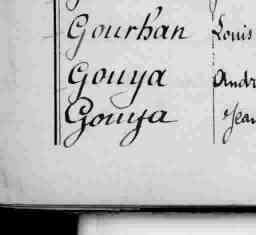 Gourhan Louis
Gouya André
Gouya Jean